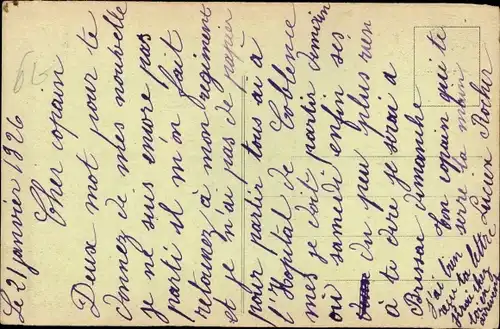 Le 21 janvier 1926
Cher copain
Deux mot pour te
donnez de mes nouvelle
je ne suis encore pas
parti il m'on fait
retournez à mon regiment
et je n'ai pas de papier
pour partir tous ai a
l'Hopital de Coblence
mes je doit partir demain
où samedi enfin ses
du peu plus rien
à te dire je serai a
Brissac dimanche
Ton copain qui te
serre la main
Lucien Rocher
J'ai bien
reçu ta lettre